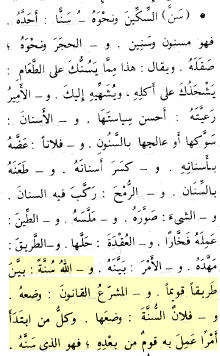 • (سَنَّ) السِّكِّينَ وَنَحْوَهُ ـُ سَنًّا : أحَدَّهُ .
فهو مسنون وسَنِين . و ـ الحجَرَ ونَحْوَهُ ؛
صَقَلَهُ . ويقال : هذا مِمَّا يَسُنُّكَ على الطَّعَامِ :
يَشْحَذُكَ على أكلِهِ . ويُشَهِّيهِ إليكَ . و ـ الأميرُ
رَعِيَّتَهُ : أحسنَ سِيَاسَتَهَا . و ـ الأسنانَ :
سَوَّكها أو عالجها بالسَّنُون . و ـ فلاناً : عَضَّهُ
بأسنانِهِ . و ـ كسَرَ أسنانَهُ . و ـ طَعَنَهُ
بالسِّنَانِ . و ـ الرُّمْحَ : ركَّبَ فيه السنانَ .
و ـ الشيءَ : صَوَّرَهُ . و ـ مَلَّسَهُ . و ـ الطِّينَ :
عَمِلَهُ فَخَّارًا . و ـ العُقْدَةَ : حَلَّها . و ـ الطَّريقَ :
مَهَّدَهُ . و ـ الأمْرَ : بَيَّنَهُ . و ـ اللهُ سُنَّةً : بَيَّنَ
طَريقاً قَويماً . و ـ المشَرِّعُ القانُونَ : وضعَهُ .
و ـ فلانٌ السُّنَّةَ : وضَعها . وكلُّ من ابتدَأَ
أمرًا عَمِلَ به قومٌ من بَعْدِهِ ؛ فهو الذي سَنَّهُ .